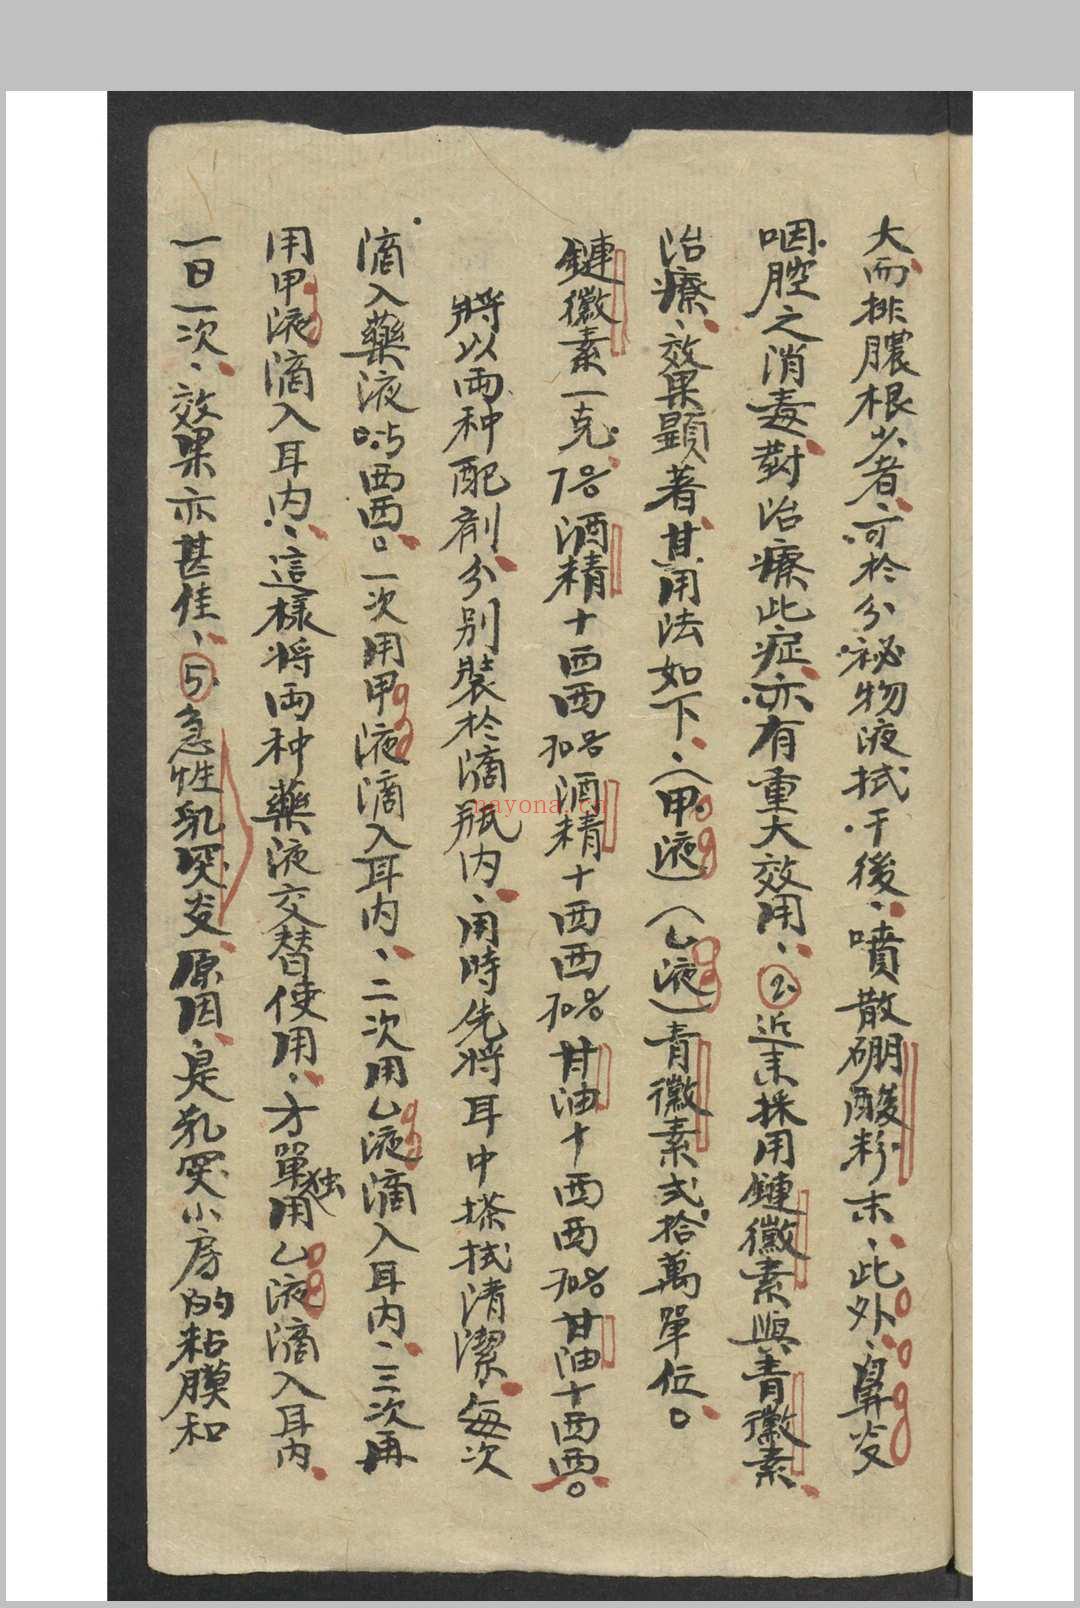 大而排膿根少者、可於分祕物液拭干後、噴散硼酸粉末、此外、鼻炎
咽腔之消毒對治療此症、亦有重大效用、②近来採用鏈黴素與青黴素
治療、效果顯著、其用法如下、(甲液)(乙液)青黴素弍拾萬單位。
鏈黴素一克。70%酒精十西西70%酒精十西西70%甘油十西西70%甘油十西西。
將以両种配剤分别裝於滴瓶内、用時先將耳中搽拭清潔、每次
滴入藥液0.5西西。一次用甲液滴入耳内、二次用乙液滴入耳内、三次再
用甲液滴入耳内、這樣將両种藥液交替使用、方單独用乙液滴入耳内、
一日一次、效果亦甚佳、⑤急性乳突炎原因、是乳突小房的粘膜和
nayona.cn